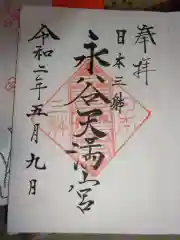 奉拝
日本三躰
永谷天満宮
令和二年五月九日